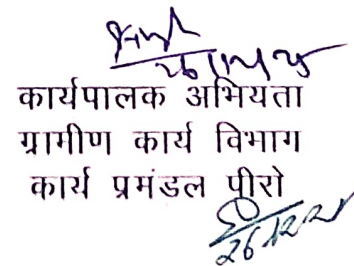 कार्यपालक अभियता
ग्रामीण कार्य विभाग
कार्य प्रमंडल पीरो